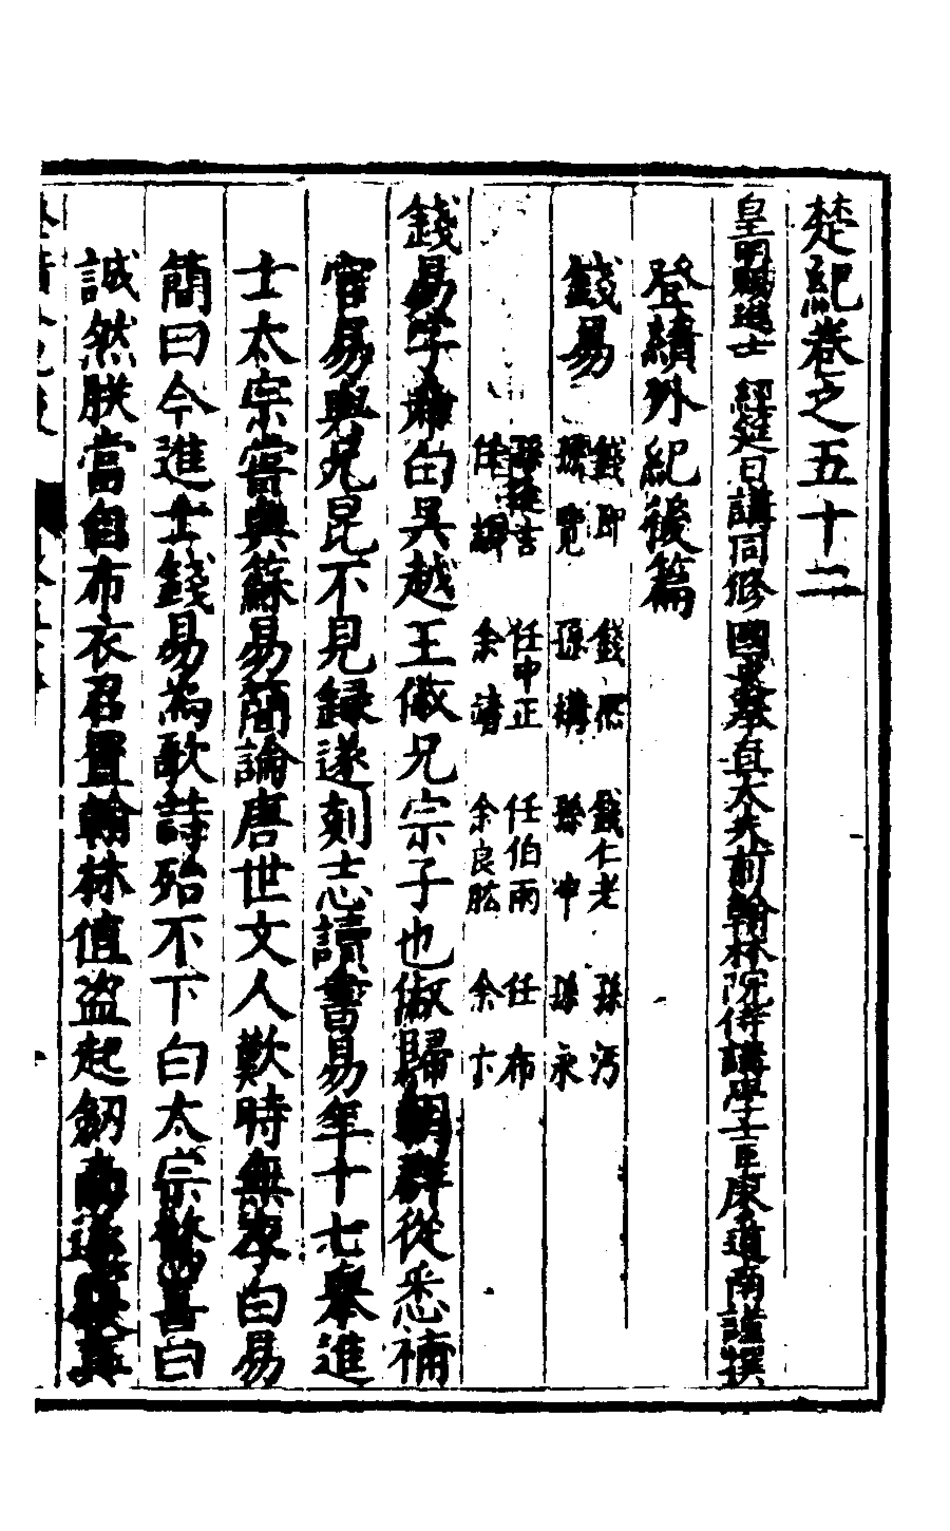 楚紀卷之五十二
皇明賜進士 經筵日講同修 國史奉直大夫前翰林院侍講學士臣廖道南謹撰
登續外紀後篇
錢易
錢即 錢愐 錢仁老 孫沔
孫覽 孫構 孫冲 孫永
任中正 任伯雨 任布
任諷 余靖 余良肱 余卞
錢易字希白吳越王倧兄宗子也俶歸朝群從悉補
官易與兄昆不見録遂刻志讀書易年十七舉進
士太宗嘗與蘇易簡論唐世文人歎時無李白易
簡曰今進士錢易為歌詩殆不下白太宗驚喜曰
誠然朕當自布衣召置翰林值盜起劒南遂寢真